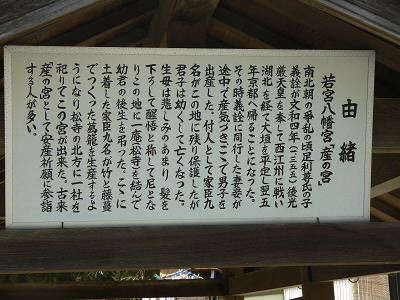 由緒
若宮八幡宮「産の宮」
南北朝の争乱の頃足利尊氏の子
義詮が文和四年(一三五五)後光
厳天皇を奉して西江州に戦い
湖北を経て大垣を平定し翌五
年京都へ帰ることになった。
その時義詮に同行した妻妾が
途中で産気づきここで男子を
出産した。付人として家臣九
名がこの地に残り保護したが
君子は幼くして亡くなった。
生母は悲しみのあまり髪を
下ろして醒悟と称して尼とな
りこの地に一庵(松寺)を結んで
幼君の後生を弔った。こゝに
土着した家臣九名が竹と藤蔓
でつくった葛籠を生産するよ
うになり松寺の北方に一社を
祀りてこの宮が出来た。古来
"産の宮"として安産祈願に参詣
する人が多い。